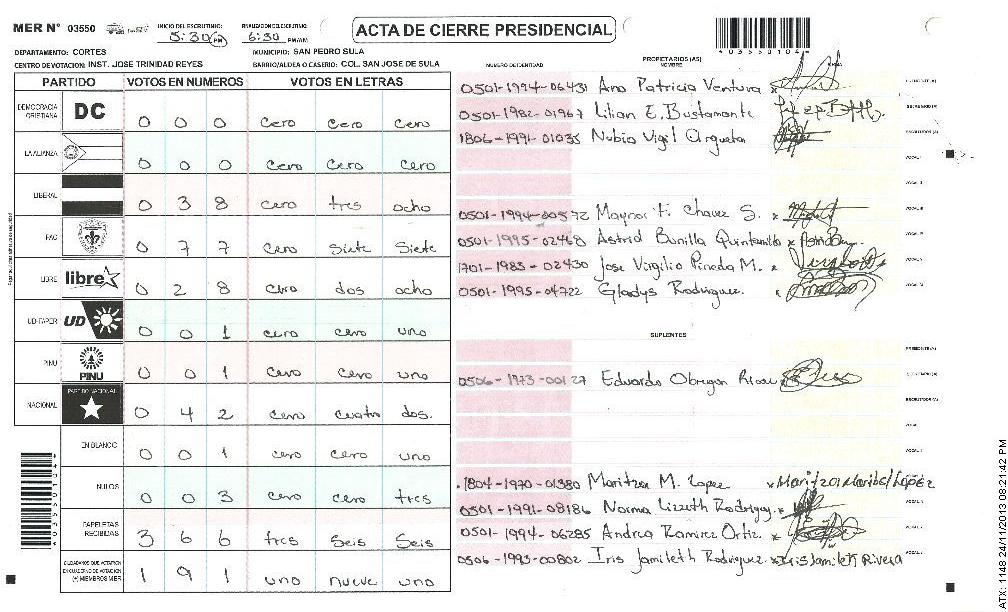 MER N° 03550
INICIO DEL ESCRUTINIO: 5:30 PM
FINALIZACION ESCRUTINIO: 6:30 PM/AM
ACTA DE CIERRE PRESIDENCIAL
403550104
DEPARTAMENTO: CORTES
MUNICIPIO: SAN PEDRO SULA
CENTRO DE VOTACION: INST. JOSE TRINIDAD REYES
BARRIO/ALDEA O CASERIO: COL. SAN JOSE DE SULA
PARTIDO VOTOS EN NUMEROS VOTOS EN LETRAS
DEMOCRACIA CRISTIANA DC 0 0 0 cero cero cero
LA ALIANZA 0 0 0 cero cero cero
LIBERAL 0 3 8 cero tres ocho
PAC 0 7 7 cero siete siete
LIBRE libre 0 2 8 cero dos ocho
UD-FAPER UD 0 0 1 cero cero uno
PINU PINU 0 0 1 cero cero uno
NACIONAL PARTIDO NACIONAL 0 4 2 cero cuatro dos.
EN BLANCO 0 0 1 cero cero uno
NULOS 0 0 3 cero cero tres
PAPELETAS RECIBIDAS 3 6 6 tres seis seis
CIUDADANOS QUE VOTARON EN CUADERNO DE VOTACION (+) MIEMBROS MER 1 9 1 uno nueve uno
NUMERO DE IDENTIDAD
PROPIETARIOS (AS)
NOMBRE
FIRMA
0501-1994-06431 Ana Patricia Ventura x PRESIDENTE (A)
0501-1982-01967 Lilian E. Bustamante SECRETARIO (A)
1806-1991-01035 Nubia Vigil Argueta x ESCRUTADOR (A)
VOCAL I
VOCAL II
0501-1994-00572 Maynor F. Chavez S. x
0501-1995-02468 Astrid Bonilla Quintanilla x
1701-1983-02430 Jose Virgilio Pineda M. x
0501-1995-04722 Gladys Rodriguez. x
SUPLENTES
PRESIDENTE (A)
0506-1973-00127 Eduardo Obregon x SECRETARIO (A)
ESCRUTADOR (A)
VOCAL I
1804-1970-01380 Maritza M. Lopez x Maritza Maribel Lopez
0501-1991-08186 Norma Lizzeth Rodriguez x
0501-1994-06285 Andrea Ramirez Ortiz. x
0506-1993-00802 Iris Jamileth Rodriguez x Iris Jamileth Rivera
ATX: 1148 24/11/2013 08:21:42 PM